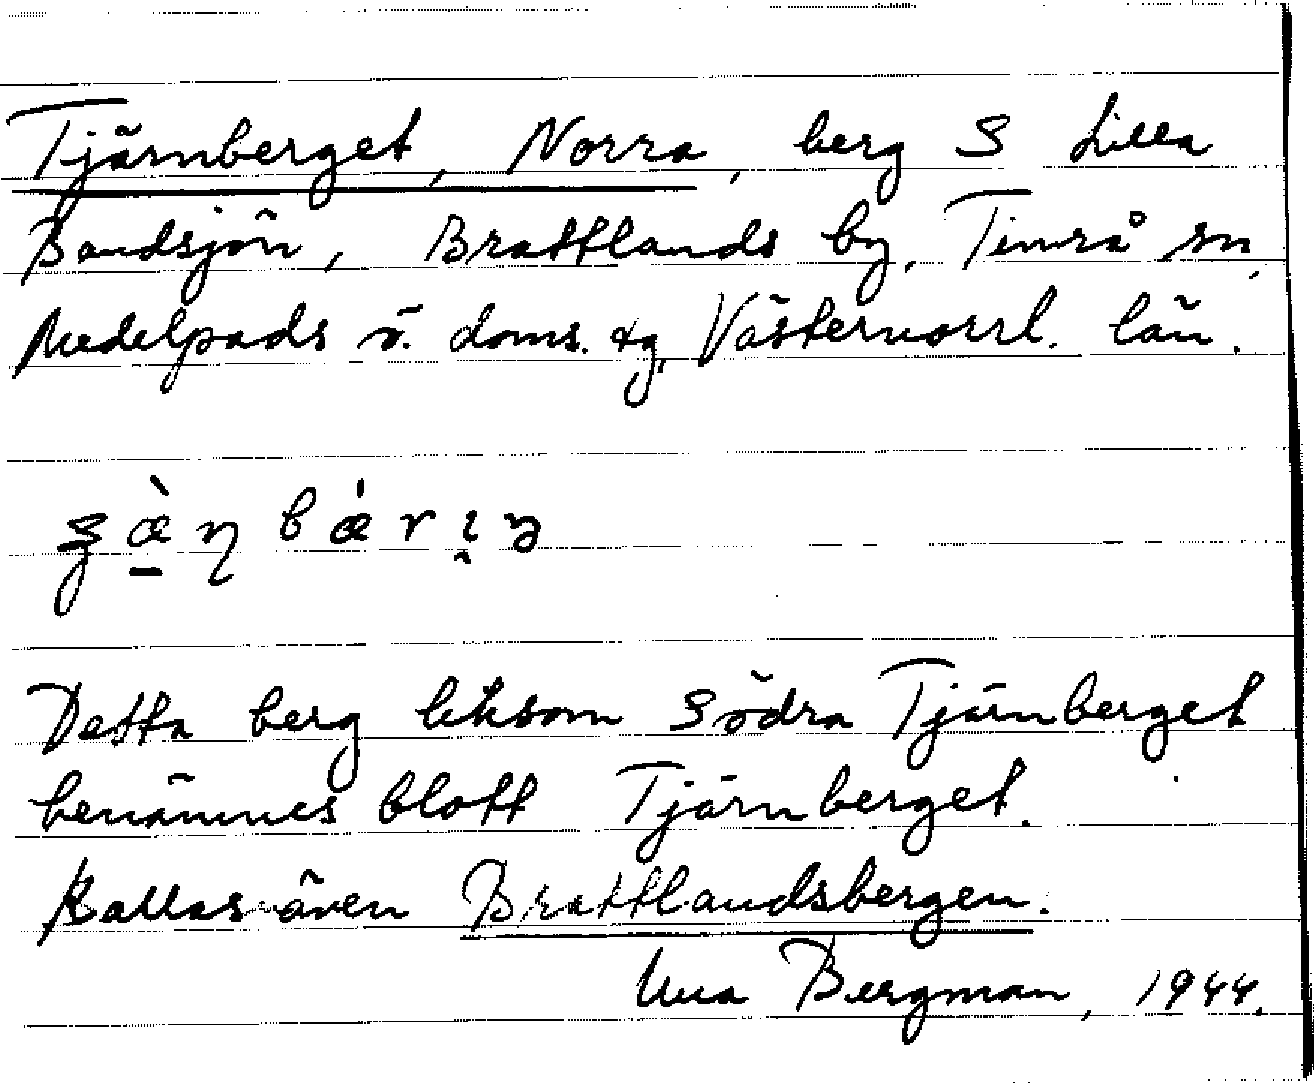 Tjärnberget, Norra, berg S Lilla
Bandsjön, Brattlands by, Timrå sn,
Medelpads ö. doms. tg, Västernorrl. län.
Detta berg liksom Södra Tjärnberget
benämnes blott Tjärnberget.
Kallas även Brattlandsbergen.
Una Bergman, 1944.